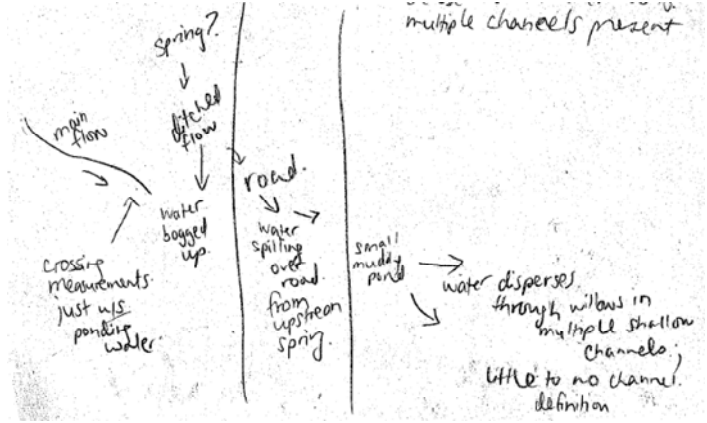 multiple channels present
spring?
ditched
flow
main
flow
road.
water
bogged
up.
crossing
measurements
just u/s
ponding
water.
water
spilling
over
road
from
upstream
spring.
small
muddy
pond
water disperses
through willows in
multiple shallow
channels;
little to no channel
definition